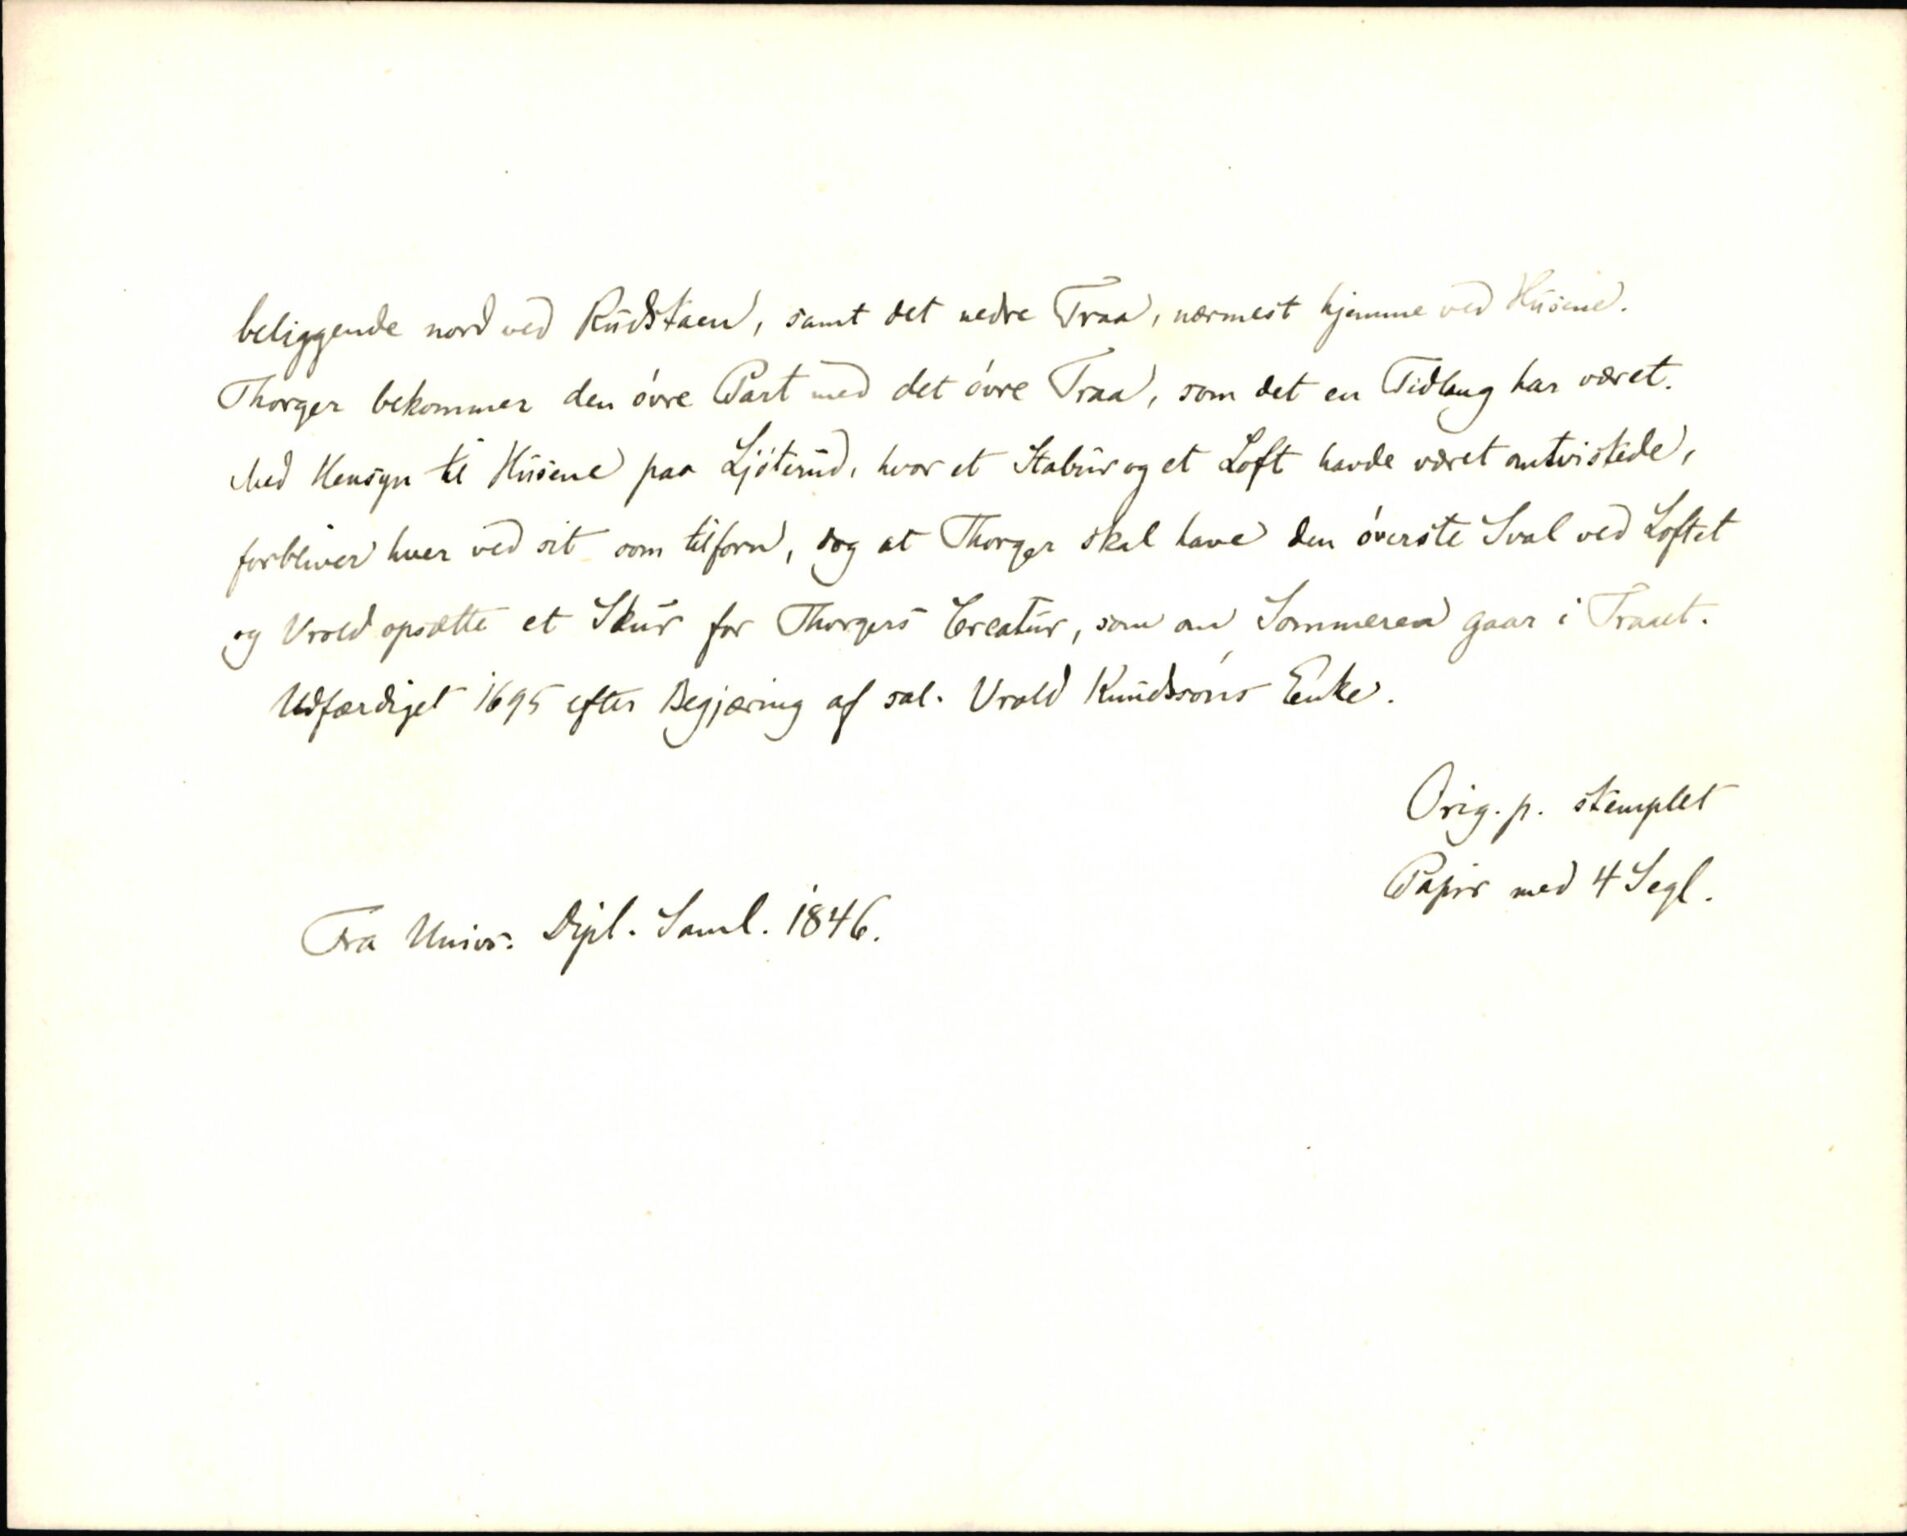 beliggende nord ved Rudstaen, samt det nedre Traa, nærmest hjemme ved Husene.
Thorger bekommer den óvre Part med det óvre Traa, som det en Tidlang har været.
Med Hensyn til Husene paa Ljóterud, hvor et Stabur og et Loft havde været omtvistede,
forbliver hver ved sit som tilforn, dog at Thorger skal have den óverste Sval ved Loftet
og Vrold opsætte et Skur for Thorgers Creatur, som om Sommeren gaar i Traaet.
Udfærdiget 1695 efter Begjæring af sal. Vrold Knudssóns Enke.
Orig. p. stemplet
Papir med 4 Segl.
Fra Univs. Dipl. Saml. 1846.